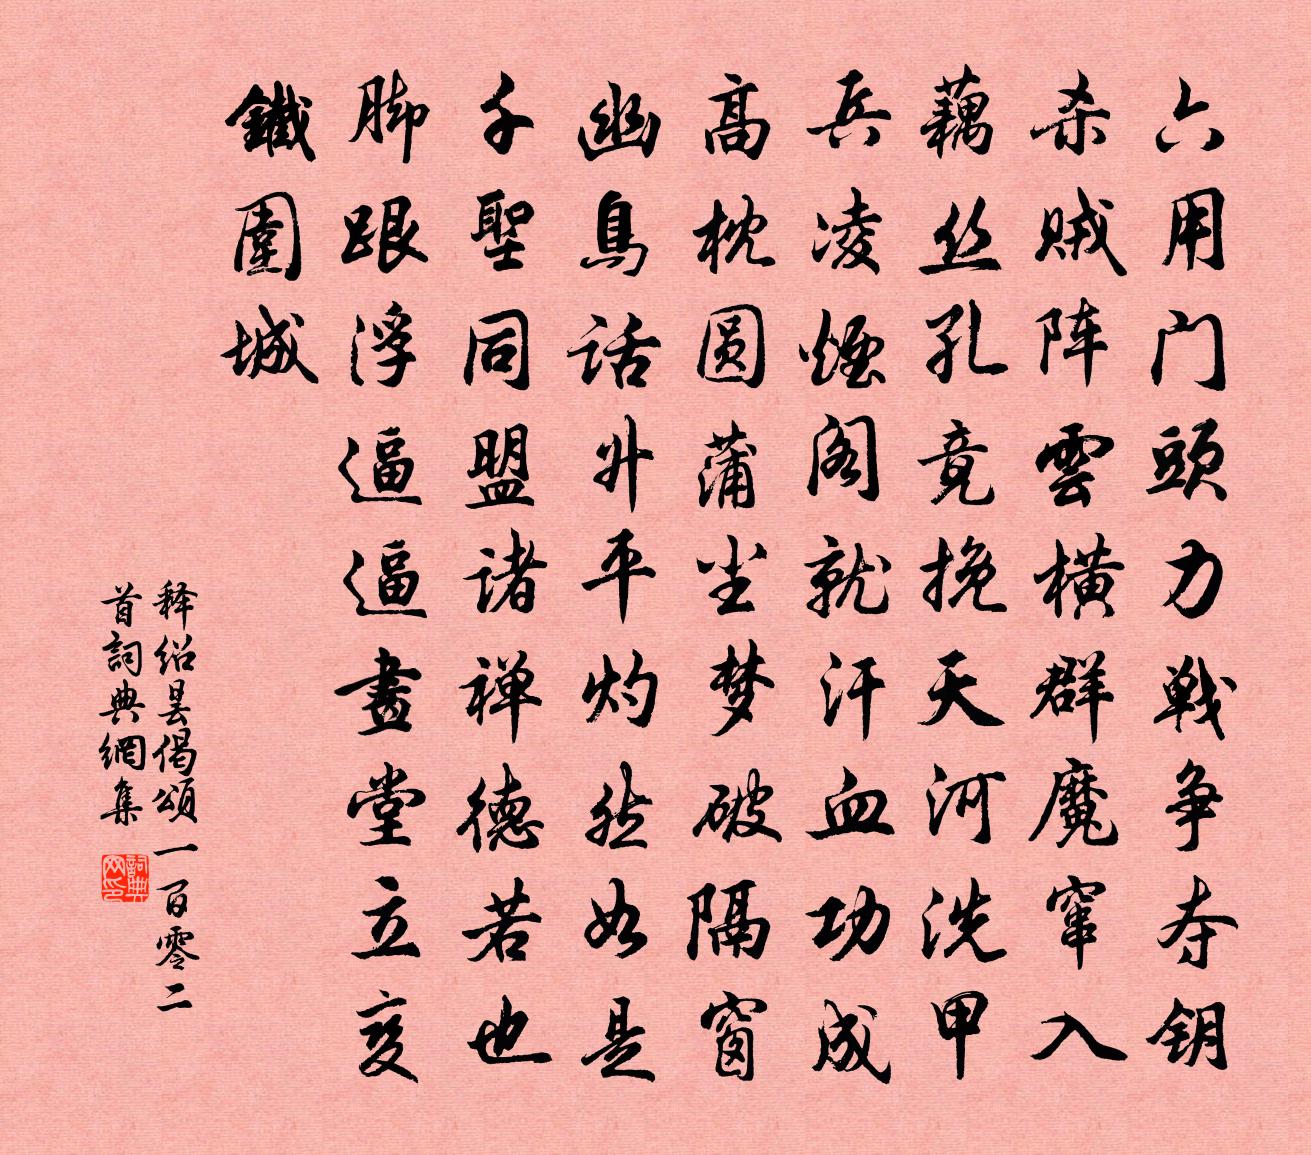 六用门頭力戰争夺钥
杀贼阵雲横群魔窜入
藕丝孔竟挽天河洗甲
兵凌煙阁就汗血功成
高枕圆蒲坐梦破隔窗
幽鳥话升平灼然如是
千聖同盟诸禅德若也
脚跟浮逼逼畫堂立变
鐵圍城
释绍昙偈頌一百零二
首詞典網集
詞典
网印